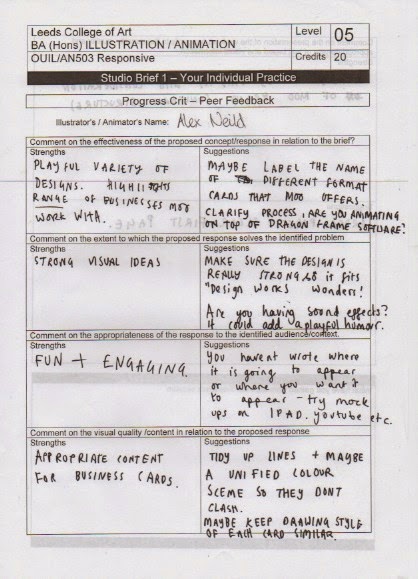 Leeds College of Art
BA (Hons) ILLUSTRATION / ANIMATION
OUIL/AN503 Responsive
Level 05
Credits 20
Studio Brief 1 – Your Individual Practice
Progress Crit – Peer Feedback
Illustrator's / Animator's Name: Alex Neild
Comment on the effectiveness of the proposed concept/response in relation to the brief?
Strengths
PLAYFUL VARIETY OF
DESIGNS. HIGHLIGHTS
RANGE OF BUSINESSES MOO
WORK WITH.
Suggestions
MAYBE LABEL THE NAME
OF DIFFERENT FORMAT
CARDS THAT MOO OFFERS.
CLARIFY PROCESS, ARE YOU ANIMATING
ON TOP OF DRAGON FRAME SOFTWARE?
Comment on the extent to which the proposed response solves the identified problem
Strengths
STRONG VISUAL IDEAS
Suggestions
MAKE SURE THE DESIGN IS
REALLY STRONG SO it FITS
"Design WORKS WONDERS!
Are you having sound effects?
it could add a playful humour.
Comment on the appropriateness of the response to the identified audience/context.
Strengths
FUN + ENGAGING.
Suggestions
You havent wrote where
it is going to appear
or where you want it
to appear - try mock
ups on IPAD, youtube etc.
Comment on the visual quality /content in relation to the proposed response
Strengths
APPROPRIATE CONTENT
FOR BUSINESS CARDS.
Suggestions
TIDY UP LINES + MAYBE
A UNIFIED COLOUR
SCEME SO THEY DONT
CLASH.
MAYBE KEEP DRAWING STYLE
OF EACH CARD SIMILAR.